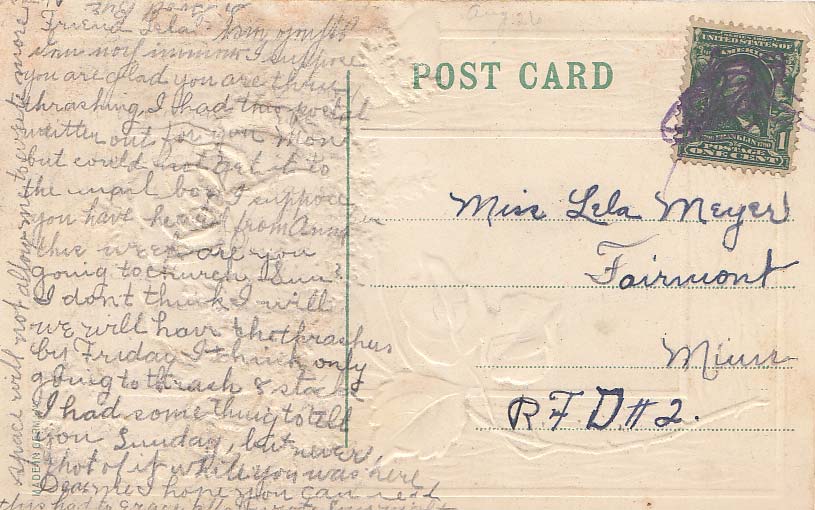 Friend Lela
I suppose
you are glad you are thru
thrashing. I had this postal
written out for you Mon
but could not get it to
the mail box I suppose
you have heard from Anna
this week are you
going to church Sun?
I dont think I will
we will have the thrashers
by Friday I think only
going to thrash 8 stacks
I had some thing to tell
you Sunday, but never
thot of it while you was here
Dear me I hope you can read
this
space will not allow me to write more
Aug. 26
POST CARD
UNITED STATES OF
AMERICA
FRANKLIN
POSTAGE
ONE CENT
1
Miss Lela Meyer
Fairmont
Minn
R.F.D #2.
MADE IN GERMANY